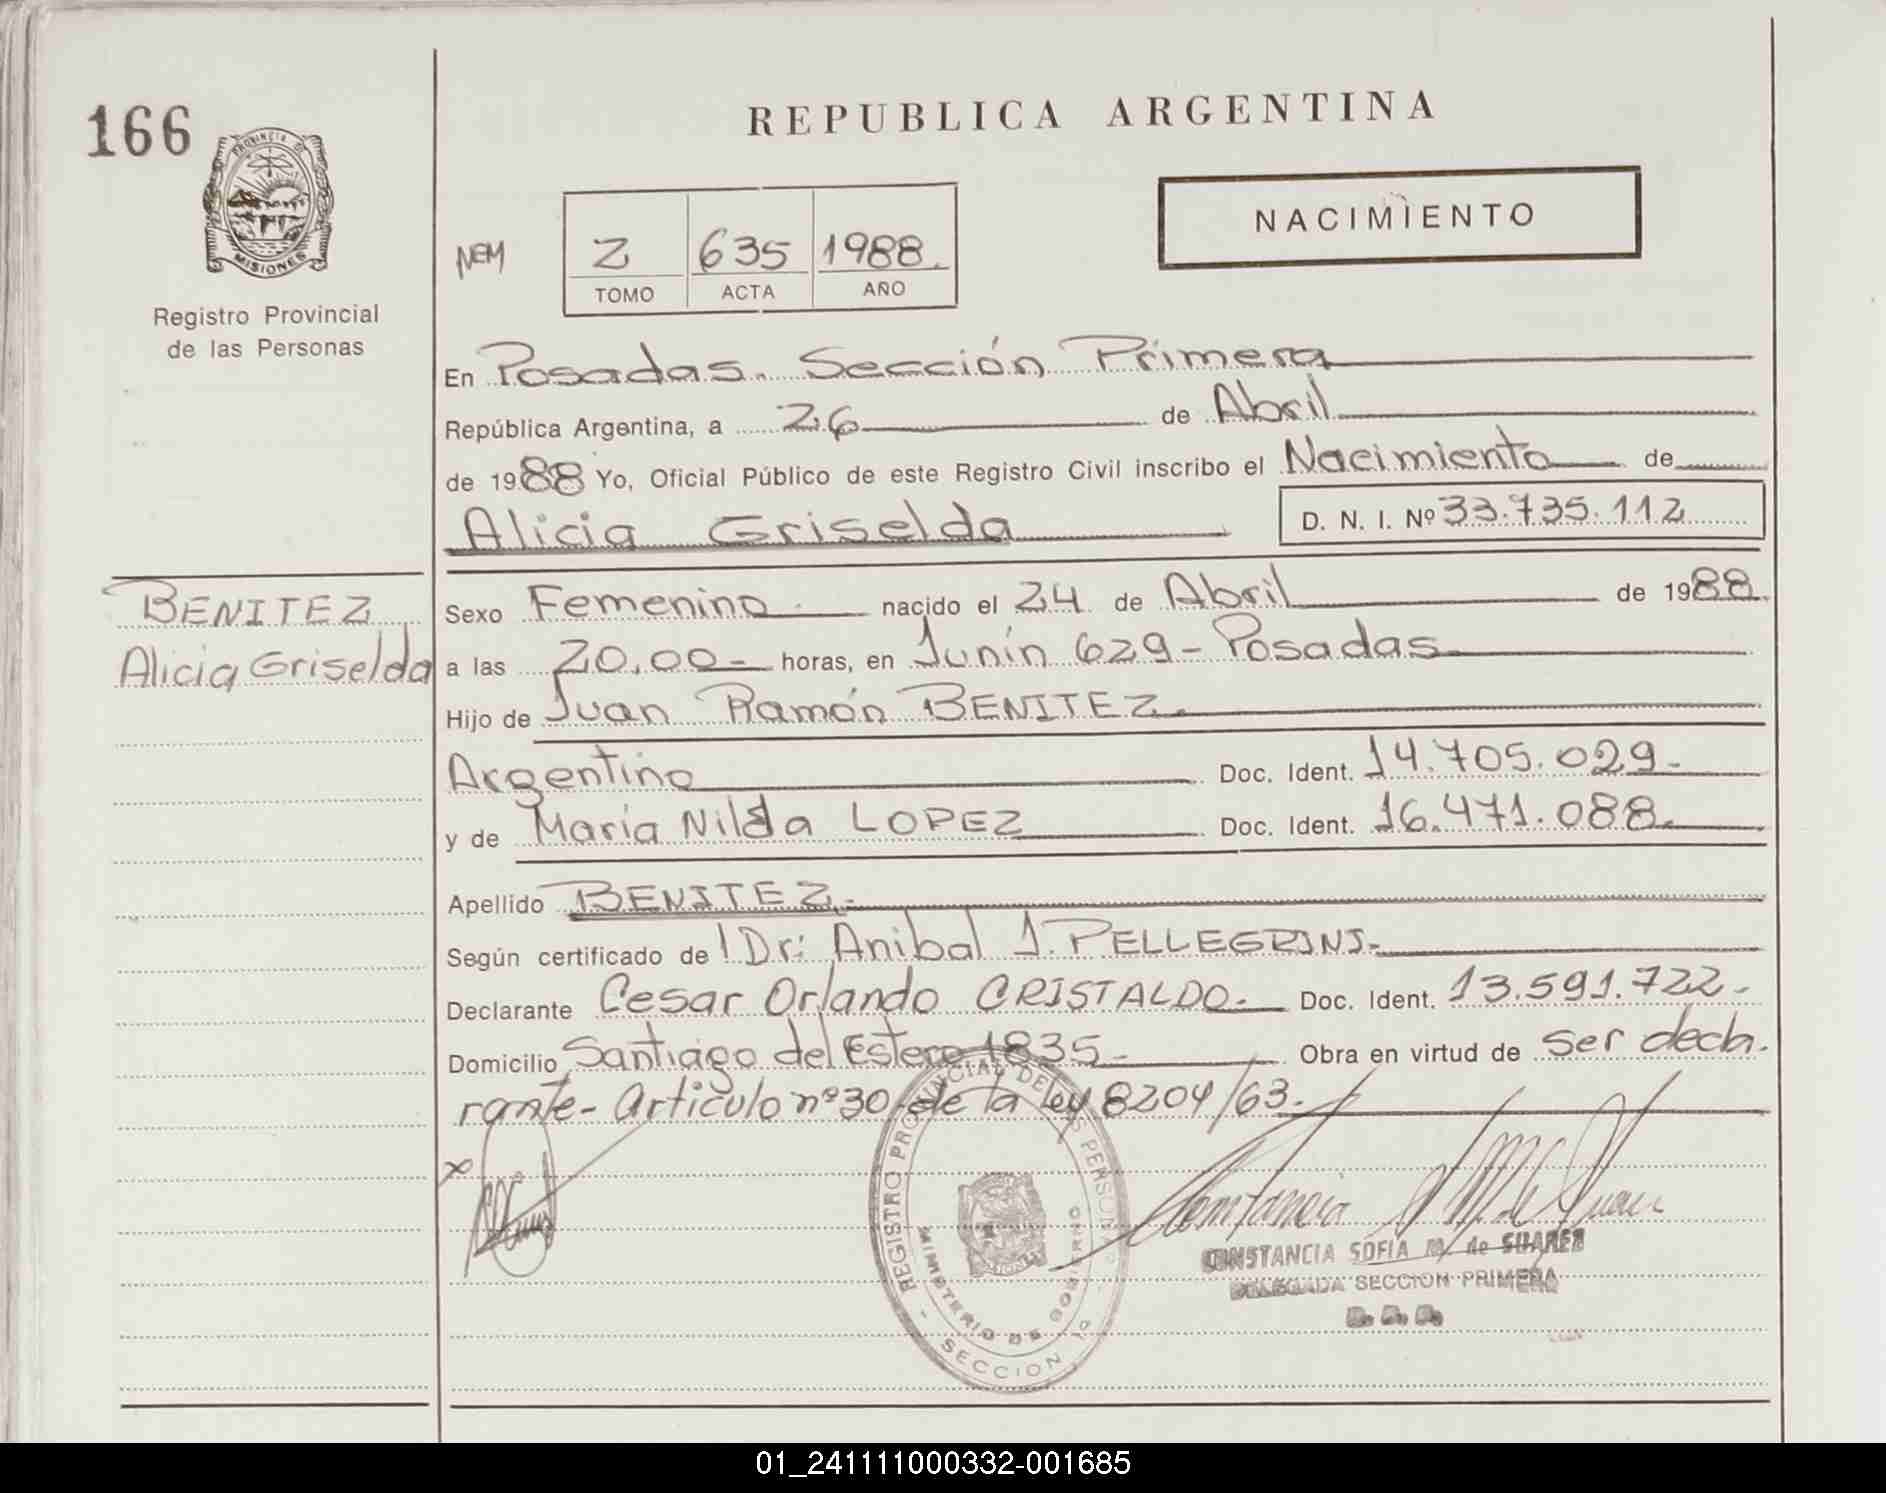 166
REPUBLICA ARGENTINA
PROVINCIA DE
MISIONES
Registro Provincial
de las Personas
NEM
2 635 1988.
TOMO ACTA AÑO
NACIMIENTO
En Posadas. Sección Primera
República Argentina, a 26 de Abril
de 1988 Yo, Oficial Público de este Registro Civil inscribo el Nacimiento de
Alicia Griselda D. N. I. Nº 33.735.112
BENITEZ
Alicia Griselda
Sexo Femenino. nacido el 24 de Abril de 1988.
a las 20,00- horas, en Junín 629 - Posadas
Hijo de Juan Ramón BENITEZ.
Argentino Doc. Ident. 14.705.029-
y de María Nilda LOPEZ Doc. Ident. 16.471.088.
Apellido BENITEZ.-
Según certificado de Dr: Anibal J. PELLEGRINI-
Declarante Cesar Orlando CRISTALDO.- Doc. Ident. 13.591.722-
Domicilio Santiago del Estero 1835- Obra en virtud de ser decla.
rante- Articulo nº 30 de la ley 8204/63.
REGISTRO PROVINCIAL DE LAS PERSONAS
MINISTERIO DE GOBIERNO
SECCION 1º
CONSTANCIA SOFIA M. de SUAREZ
DELEGADA SECCION PRIMERA
01_241111000332-001685